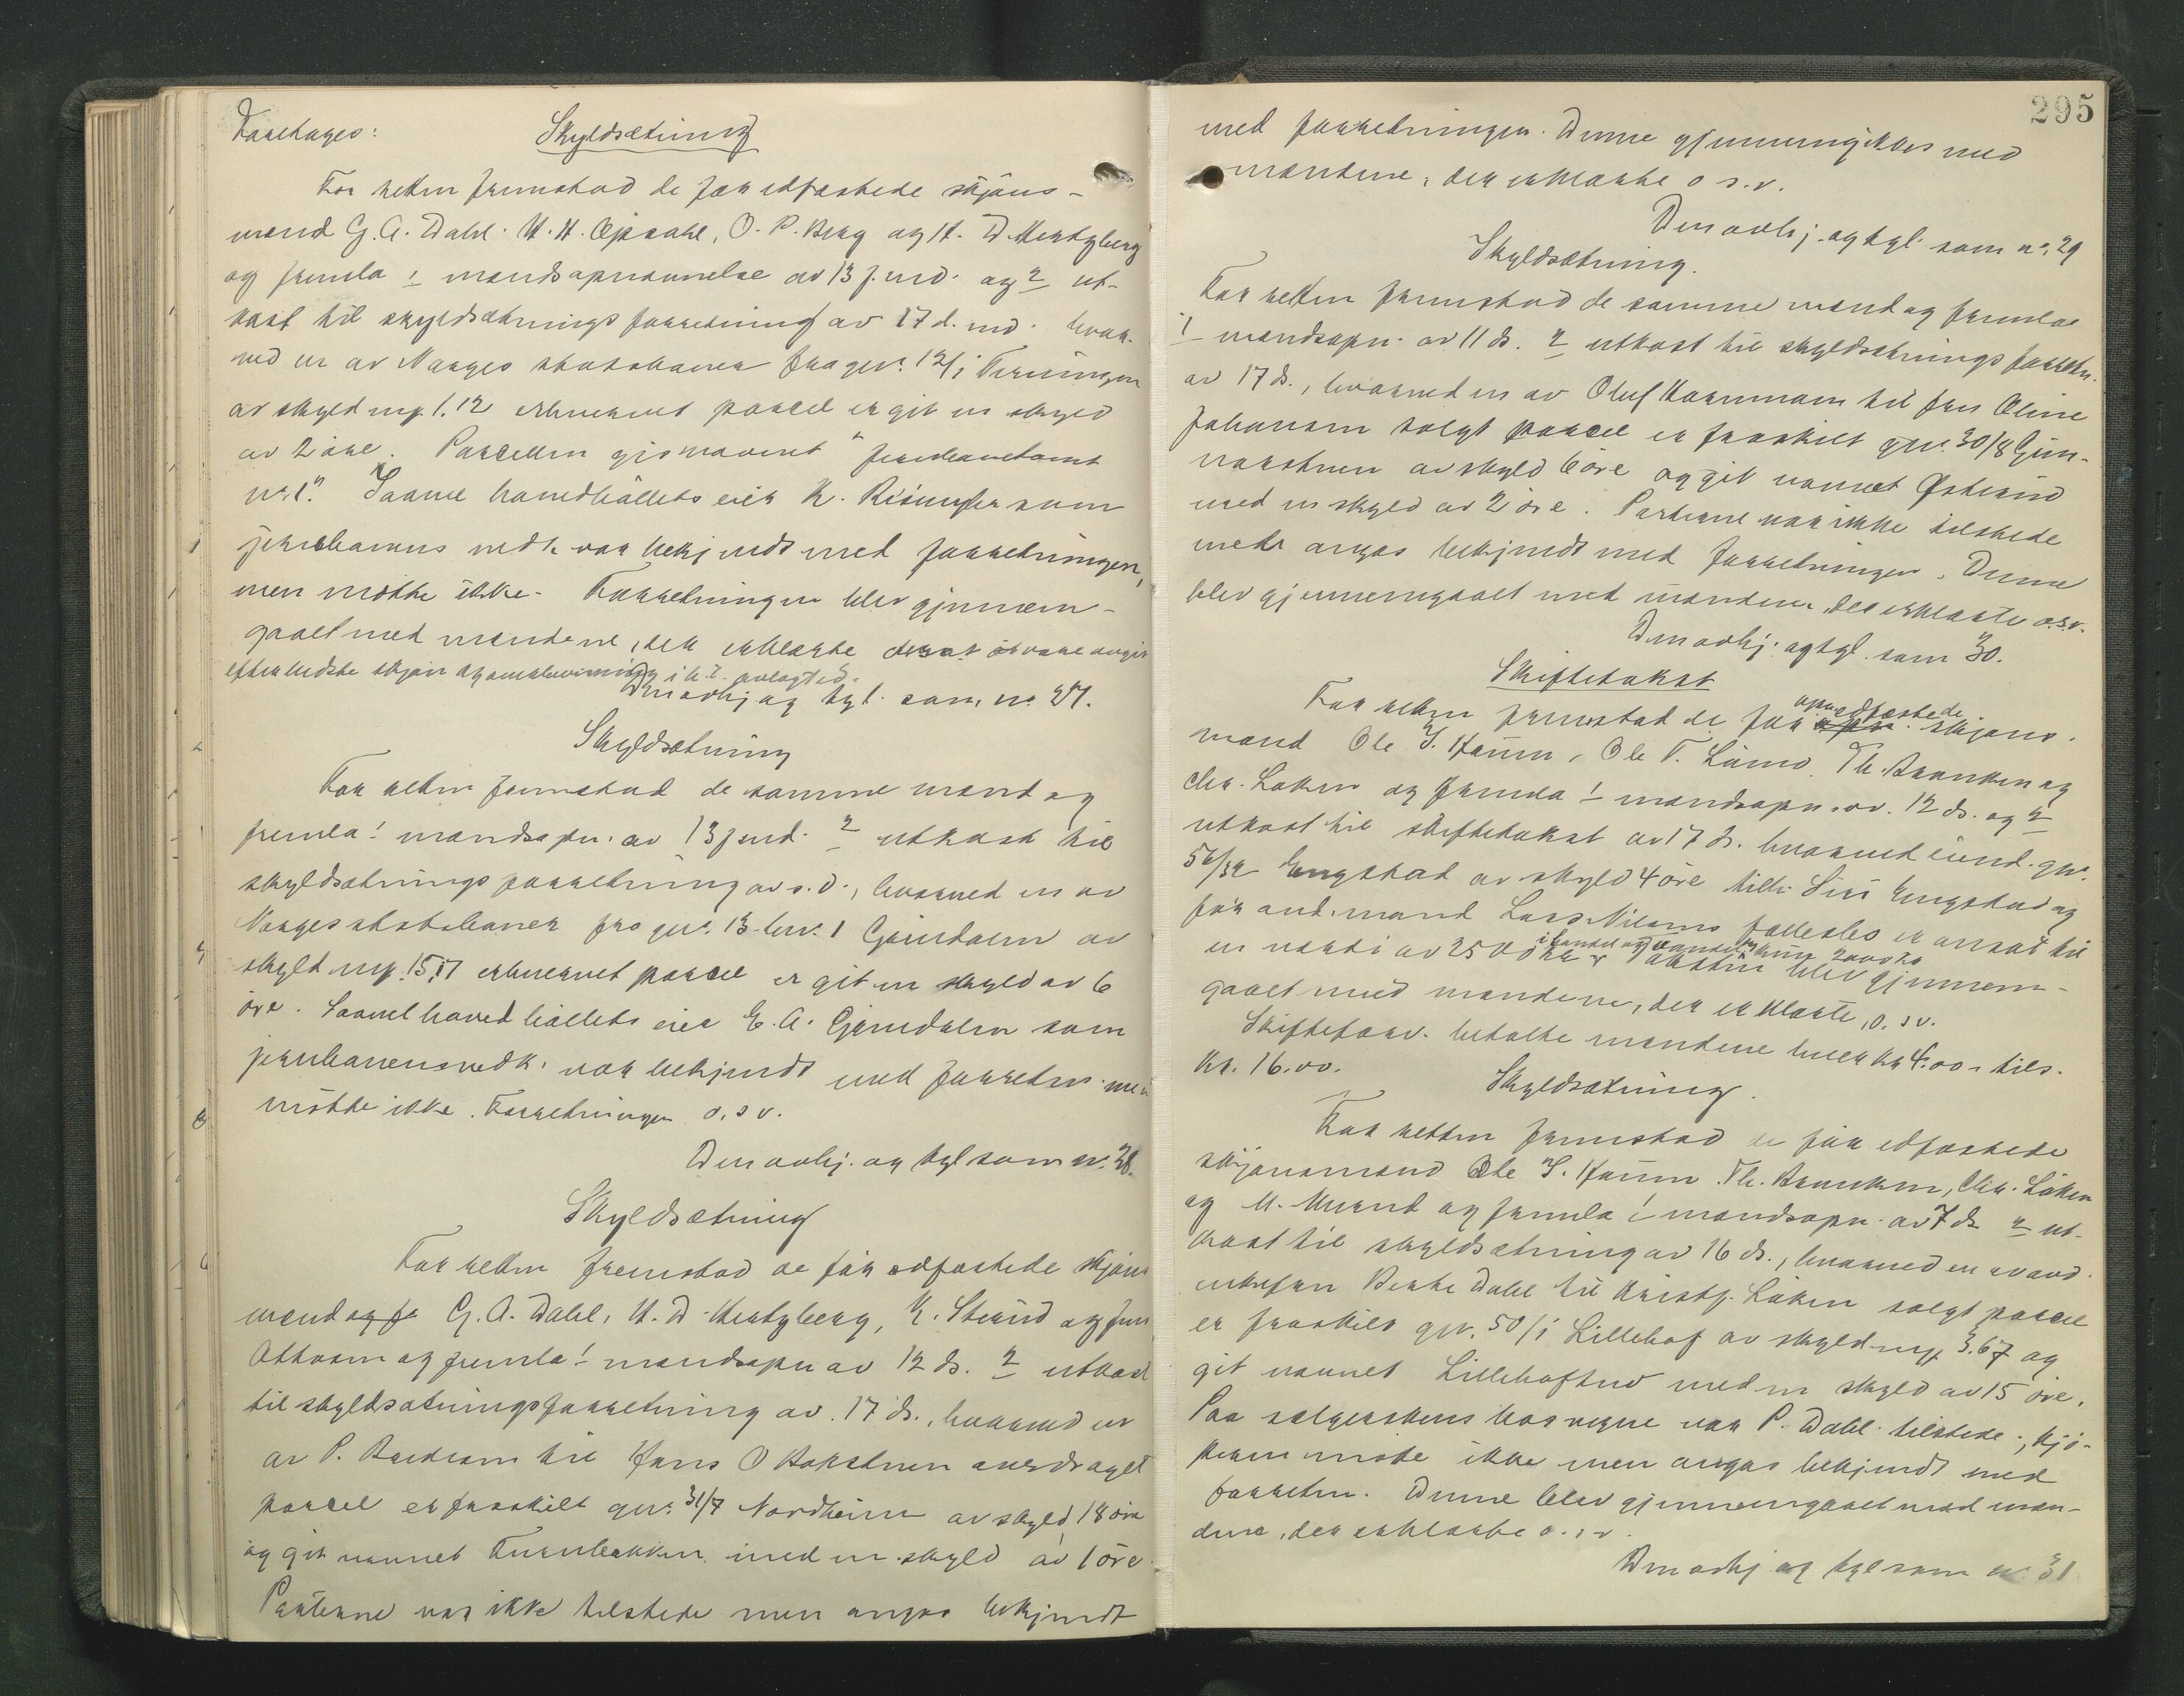 Foretages: Skyldsætning
For retten fremstod de før edfæstede skjøns-
mænd G. A. Dahl. H. H. Opsahl, O. P. Berg og H. D. Hertzberg
og fremla 1 mandsopnævnelse av 13 f. md. og 2 ut-
kast til skyldsætningsforretning av 17 d. md. hvor-
ved en av Norges statsbaner fra gnr. 12/1
av skyld mrk 1.12 erhvervet parcel er git en skyld
av 2 øre. Parcellen gis navnet "Jernbanetomt
nr. 1." Saavel hovedbøllets eier K. som
jernbanens vedk. var bekjendt med forretningen,
men møtte ikke. Forretningen blev gjennem-
gaaet med mændene, der erklærte at være avgit
efter bedste skjøn og overbevisning i h.t. avlagt ed.
Den avhj. og tgl. som nr. 27.
Skyldsætning
For retten fremstod de samme mænd og
fremla 1 mandsopn. av 13 f. md. 2 utkast til
skyldsætningsforretning av s. d., hvorved en av
Norges statsbaner fra gnr. 13 bnr. 1 Gjeidalen av
skyld mrk. 15,17 erhvervet parcel er git en skyld av 6
øre. Saavel hovedbøllets eier E. A. Gjeidalen som
jernbanens vedk. var bekjendt med forretn. men
møtte ikke. Forretningen o. s. v.
Den avhj. og tgl som nr. 28.
Skyldsætning
For retten fremstod de før edfæstede skjøns
mænd og fr G. A. Dahl, H. D. Hertzberg, K. Strand og
og fremla 1 mandsopn av 12 ds. 2 utkast
til skyldsætningsforretning av 17 ds., hvorved en
av P. til Jens O Bakstuen overdraget
parcel er fraskilt gnr. 31/7 Nordheim av skyld 18 øre
og git navnet Furubakken med en skyld av 1 øre.
Parterne var ikke tilstede men angas bekjendt
295
med forretningen. Denne gjennemgikkes med
mændene, der erklærte o s. v.
Den avhj. og tgl. som nr. 29
Skyldsætning.
For retten fremstod de samme mænd og fremla
1 mandsopn. av 11 ds. 2 utkast til skyldsætningsforretn.
av 17 ds., hvorved en av Oluf til fru Oline
Johansen solgt parcel er fraskilt gnr. 30/8
av skyld 6 øre og git navnet Østlund
med en skyld av 2 øre. Parterne var ikke tilstede
men angas bekjendt med forretningen. Denne
blev gjennemgaaet med mændene, der erklærte o.s.v.
Den avhj. og tgl. som 30.
Skiftetakst
For retten fremstod de før opn edfæstede skjøns-
mænd Ole S. Haum, Ole T. Limo, Th. Brenken og
Chr. Løken og fremla 1 mandsopn. av 12 ds. og 2
utkast til skiftetakst av 17 ds. hvorved eiend. gnr.
56/32 Engstad av skyld 4 øre tilh. Siri Engstad og
før avd. mand Lars Nilsens fællesbo er ansat til
en værdi av 2500 kr i handel og vandel og kun 2000 kr Taksten blev gjennem-
gaaet med mændene, der erklærte, o. s v.
Skifteforv. betalte mændene hver kr 4.00 - tils.
kr. 16.00.
Skyldsætning.
For retten fremstod de før edfæstede
skjønsmænd Ole S. Haum. Th. Brenken, Chr. Løken
og M. og fremla 1 mandsopn. av 7 ds 2 ut-
kast til skyldsætning av 16 ds., hvorved en av
enkefru Berthe Dahl til Kristf. Løken solgt parcel
er fraskilt gnr. 50/1 Lillehof av skyld mrk 3.67 og
git navnet Lillehoftun med en skyld av 15 øre.
Paa sælgerskens vegne var P. Dahl tilstede, kjø-
peren møtte ikke men angas bekjendt med
forretn. Denne blev gjennemgaaet med mæn-
dene, der erklærte o. s v.
Den avhj og tgl som nr. 31